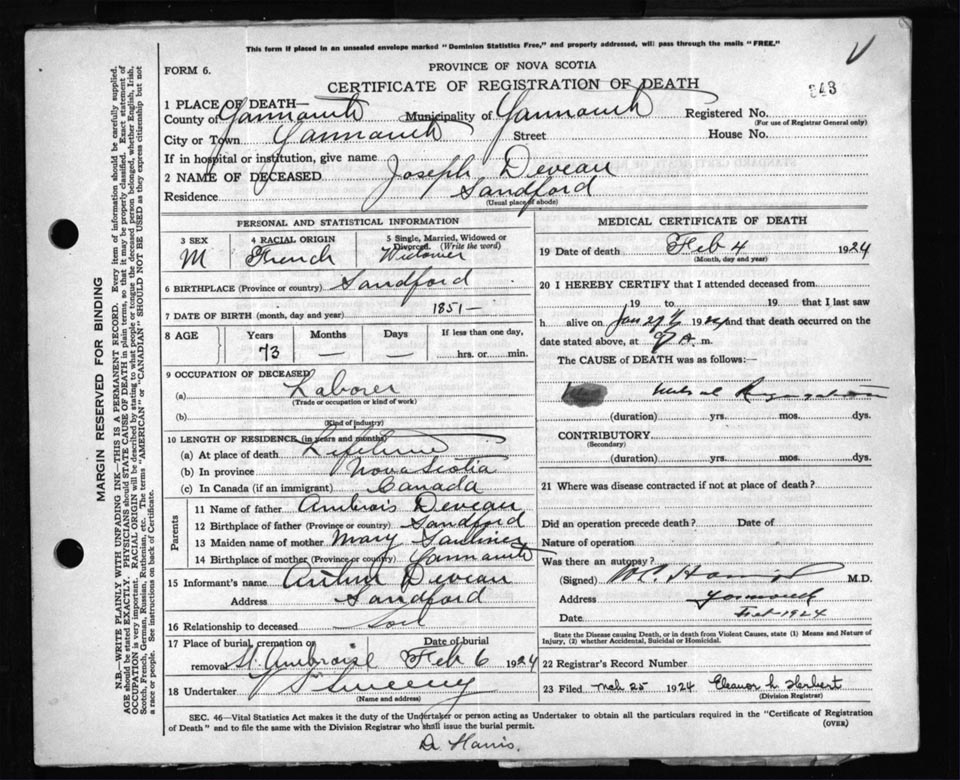 This form if placed in an unsealed envelope marked "Dominion Statistics Free," and properly addressed, will pass through the mails "FREE."
FORM 6.
PROVINCE OF NOVA SCOTIA
CERTIFICATE OF REGISTRATION OF DEATH
343
1 PLACE OF DEATH—
County of Yarmouth Municipality of Yarmouth Registered No.
(For use of Registrar General only)
City or Town Yarmouth Street House No.
If in hospital or institution, give name
2 NAME OF DECEASED Joseph Deveau
Residence Sandford
(Usual place of abode)
PERSONAL AND STATISTICAL INFORMATION
3 SEX M
4 RACIAL ORIGIN French
5 Single, Married, Widowed or Divorced. (Write the word) Widower
6 BIRTHPLACE (Province or country) Sandford
7 DATE OF BIRTH (month, day and year) 1851—
8 AGE Years Months Days If less than one day,
73 — — hrs. or min.
9 OCCUPATION OF DECEASED
(a) Laborer
(Trade or occupation or kind of work)
(b)
(Kind of industry)
10 LENGTH OF RESIDENCE (in years and months)
(a) At place of death Lifetime
(b) In province Nova Scotia
(c) In Canada (if an immigrant) Canada
Parents
11 Name of father Ambrois Deveau
12 Birthplace of father (Province or country) Sandford
13 Maiden name of mother Mary
14 Birthplace of mother (Province or country) Yarmouth
15 Informant's name Arthur Deveau
Address Sandford
16 Relationship to deceased Son
17 Place of burial, cremation or Date of burial
removal St. Ambroise Feb 6 1924
18 Undertaker Sweeny
(Name and address)
MEDICAL CERTIFICATE OF DEATH
19 Date of death Feb 4 1924
(Month, day and year)
20 I HEREBY CERTIFY that I attended deceased from
19 to 19 that I last saw
h alive on Jan 1924 and that death occurred on
date stated above, at 9 a. m.
The CAUSE of DEATH was as follows:—
Mitral Regurgitation
(duration) yrs. mos. dys.
CONTRIBUTORY
(Secondary)
(duration) yrs. mos. dys.
21 Where was disease contracted if not at place of death?
Did an operation precede death? Date of
Nature of operation
Was there an autopsy?
(Signed) M.D.
Address Yarmouth
Date 1924
State the Disease causing Death, or in death from Violent Causes, state (1) Means and Nature of
Injury, (2) whether Accidental, Suicidal or Homicidal.
22 Registrar's Record Number
23 Filed Mch 25 1924 Eleanor h. Herbert
(Division Registrar)
SEC. 46—Vital Statistics Act makes it the duty of the Undertaker or person acting as Undertaker to obtain all the particulars required in the "Certificate of Registration
of Death" and to file the same with the Division Registrar who shall issue the burial permit.
(OVER)
Dr Harris.
MARGIN RESERVED FOR BINDING
N.B.—WRITE PLAINLY WITH UNFADING INK—THIS IS A PERMANENT RECORD. Every item of information should be carefully supplied.
AGE should be stated EXACTLY. PHYSICIANS should STATE CAUSE OF DEATH in plain terms, so that it may be properly classified. Exact statement of
OCCUPATION is very important. RACIAL ORIGIN will be described by stating to what people or tongue the deceased person belonged, whether English, Irish,
Scotch, French, German, Russian, Ruthenian, etc. The terms "AMERICAN" or "CANADIAN" SHOULD NOT BE USED as they express citizenship but not
a race or people. See instructions on back of Certificate.